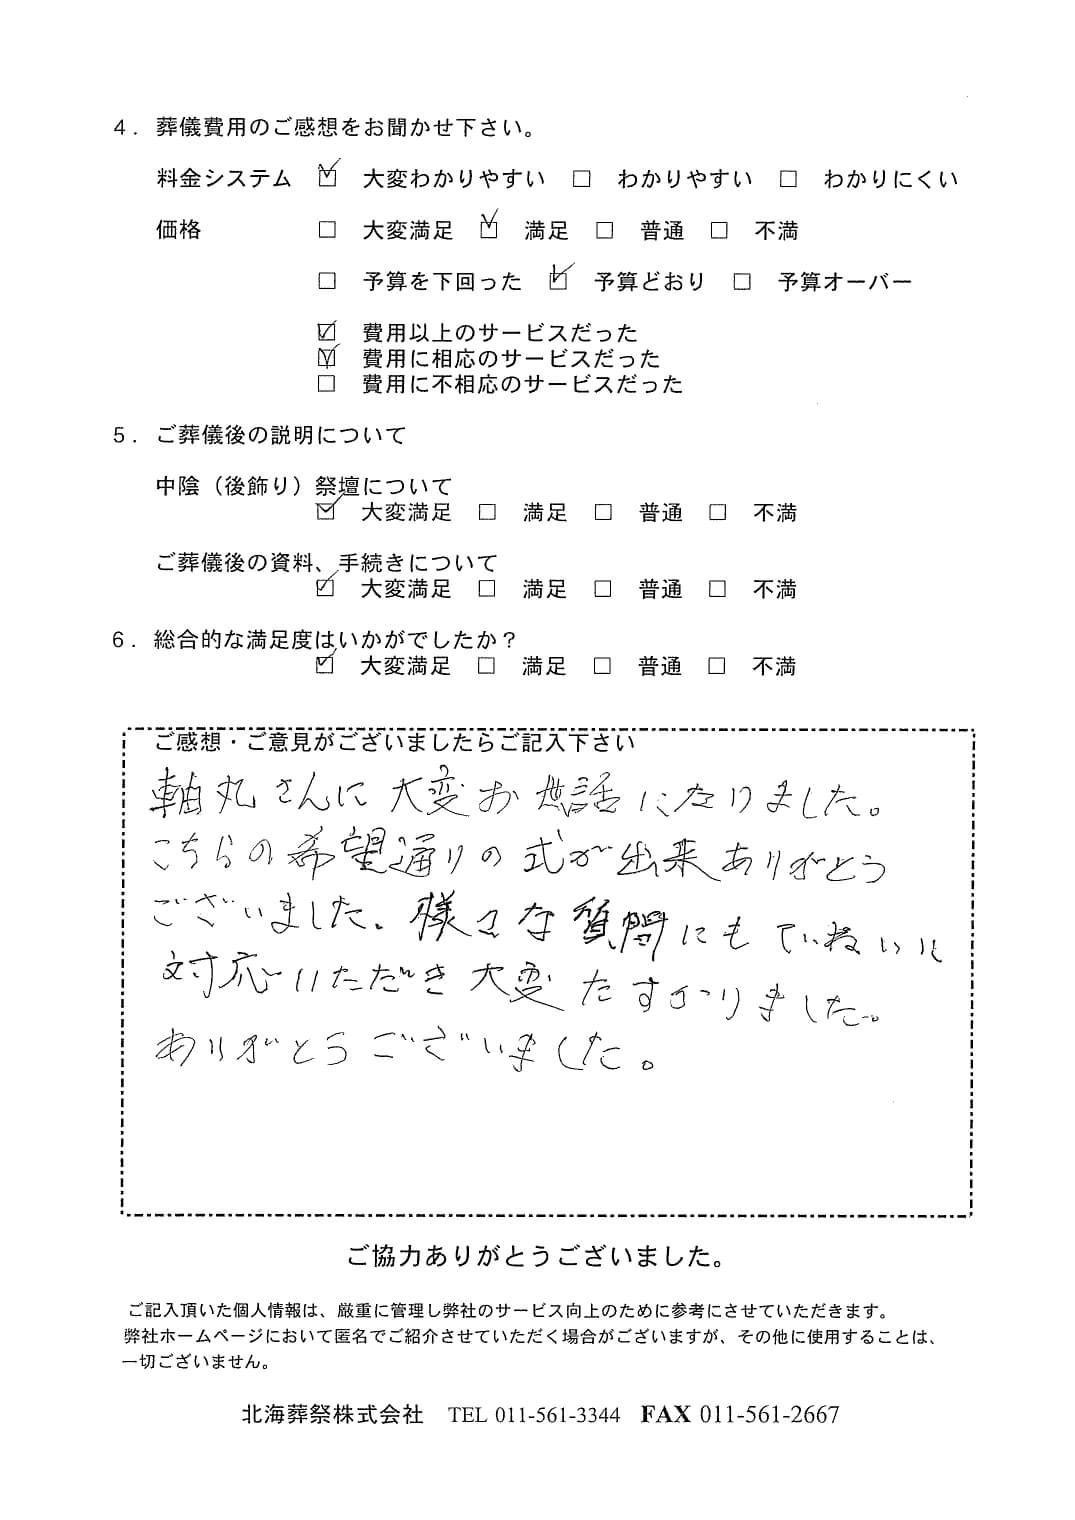 4．葬儀費用のご感想をお聞かせ下さい。
料金システム ☑ 大変わかりやすい □ わかりやすい □ わかりにくい
価格 □ 大変満足 ☑ 満足 □ 普通 □ 不満
□ 予算を下回った ☑ 予算どおり □ 予算オーバー
☑ 費用以上のサービスだった
☑ 費用に相応のサービスだった
□ 費用に不相応のサービスだった
5．ご葬儀後の説明について
中陰（後飾り）祭壇について
☑ 大変満足 □ 満足 □ 普通 □ 不満
ご葬儀後の資料、手続きについて
☑ 大変満足 □ 満足 □ 普通 □ 不満
6．総合的な満足度はいかがでしたか？
☑ 大変満足 □ 満足 □ 普通 □ 不満
ご感想・ご意見がございましたらご記入下さい
軸丸さんに大変お世話になりました。
こちらの希望通りの式が出来ありがとう
ございました。様々な質問にもていねいに
対応いただき大変たすかりました。
ありがとうございました。
ご協力ありがとうございました。
ご記入頂いた個人情報は、厳重に管理し弊社のサービス向上のために参考にさせていただきます。
弊社ホームページにおいて匿名でご紹介させていただく場合がございますが、その他に使用することは、
一切ございません。
北海葬祭株式会社 TEL 011-561-3344 FAX 011-561-2667